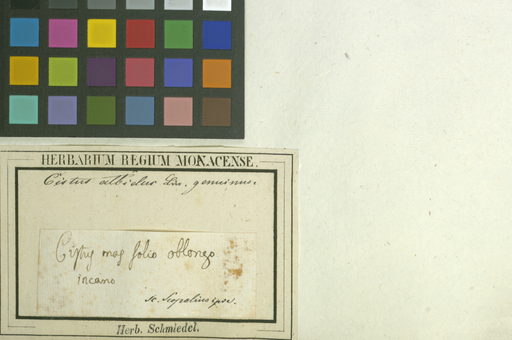 HERBARIUM REGIUM MONACENSE.
Cistus albidus Lin. genuinus.
Cistus mas folio oblongo
incano
Sc. Scopolius ipse.
Herb. Schmiedel.